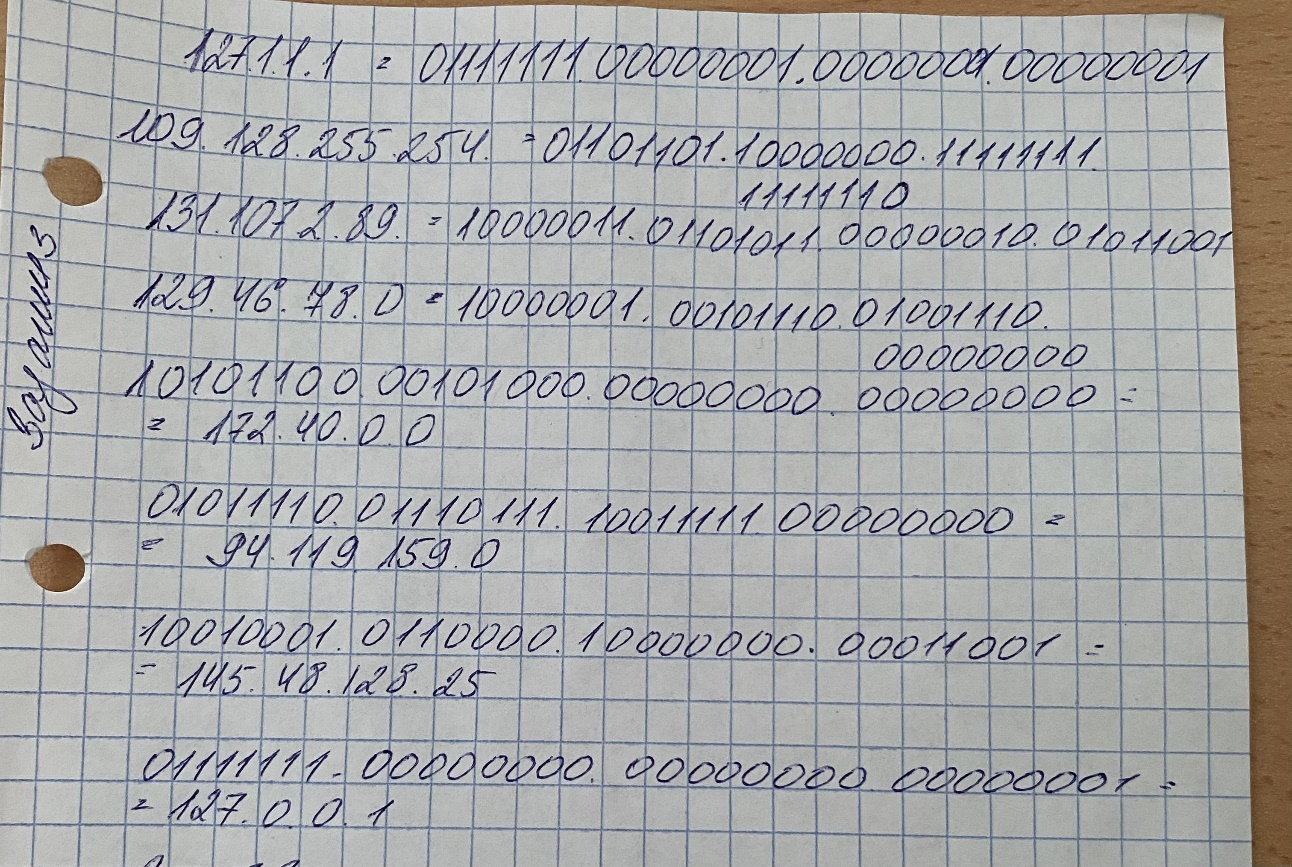 127.1.1.1 = 01111111.00000001.00000001.00000001
109.128.255.254. = 01101101.10000000.11111111.
11111110
131.107.2.89. = 10000011.01101011.00000010.01011001
129.46.78.0 = 10000001.00101110.01001110.
00000000
10101100.00101000.00000000.00000000 =
= 172.40.0.0
01011110.01110111.10011111.00000000 =
= 94.119.159.0
10010001.0110000.10000000.00011001 =
= 145.48.128.25
01111111.00000000.00000000.00000001 =
= 127.0.0.1